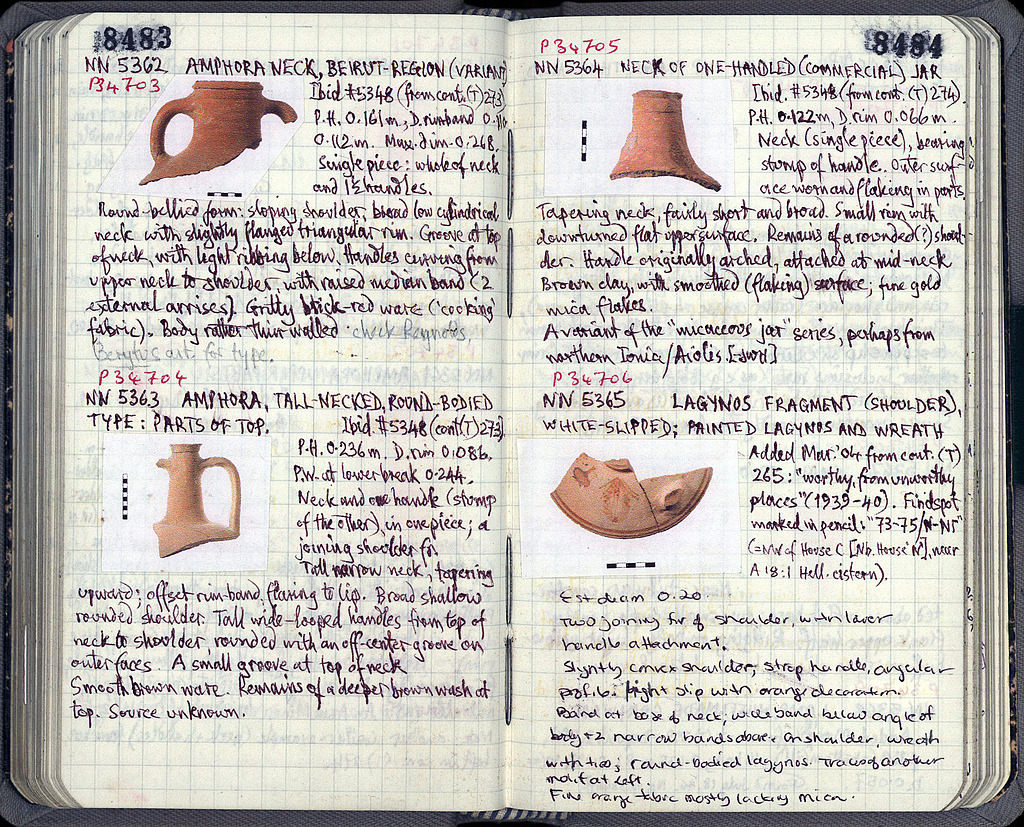 8483
NN 5362 AMPHORA NECK, BEIRUT-REGION (VARIANT)
P34703
Ibid #5348 (from cont. (T) 273)
P.H. 0.161 m, D. rimband
0.112 m. Max. dim. 0.268.
Single piece: whole of neck
and 1½ handles.
Round-bellied form: sloping shoulder, broad low cylindrical
neck with slightly flanged triangular rim. Groove at top
of neck, with light ribbing below. Handles curving from
upper neck to shoulder, with raised median band (2
external arrises). Gritty brick-red ware ('cooking'
fabric). Body rather thin walled. check Reynolds,
Berytus art. for type.
P34704
NN 5363 AMPHORA, TALL-NECKED, ROUND-BODIED
TYPE: PARTS OF TOP.
Ibid. #5348 (cont. (T) 273)
P.H. 0.236 m. D. rim 0.086.
P.W. at lower break 0.244.
Neck and one handle (stump
of the other), in one piece; a
joining shoulder fr.
Tall narrow neck, tapering
upward; offset rim-band, flaring to lip. Broad shallow
rounded shoulder. Tall wide-looped handles from top of
neck to shoulder, rounded with an off-center groove on
outer faces. A small groove at top of neck.
Smooth brown ware. Remains of a deeper brown wash at
top. Source unknown.
8484
P34705
NN 5364 NECK OF ONE-HANDLED (COMMERCIAL) JAR
Ibid. #5348 (from cont. (T) 274).
P.H. 0.122 m, D. rim 0.066 m.
Neck (single piece), bearing
stump of handle. Outer surf-
ace worn and flaking in parts.
Tapering neck, fairly short and broad. Small rim with
downturned flat upper surface. Remains of a rounded (?) shoul-
der. Handle originally arched, attached at mid-neck
Brown clay, with smoothed (flaking) surface; fine gold
mica flakes.
A variant of the "micaceous jar" series, perhaps from
northern Ionia/Aiolis
P34706
NN 5365 LAGYNOS FRAGMENT (SHOULDER),
WHITE-SLIPPED; PAINTED LAGYNOS AND WREATH
Added Mar. '04 from cont. (T)
265: "worthy, from unworthy
places" (1939-40). Findspot
marked in pencil: "73-75/
(=NW of House C [Nb. House N], near
A 18:1 Hell. cistern).
Est diam 0.20.
Two joining frr of shoulder, with lower
handle attachment.
Slightly convex shoulder; strap handle, angular
profile; light slip with orange decoration.
Band at base of neck; wide band below angle of
body + 2 narrow bands above. On shoulder, wreath
with ties; round-bodied lagynos. Traces of another
motif at left.
Fine orange fabric mostly lacking mica.